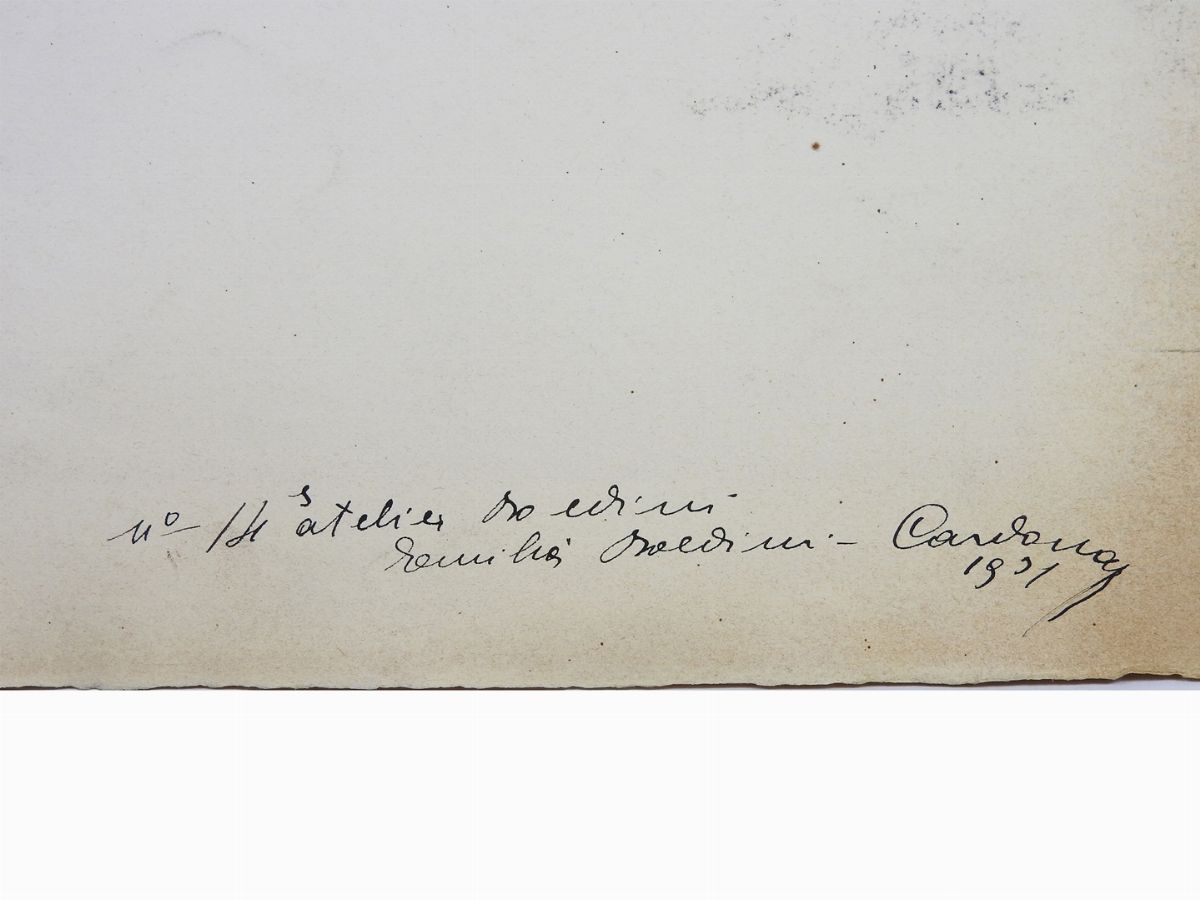 nº 14 s atelier Boldini
Emilia Boldini - Cardona
1931